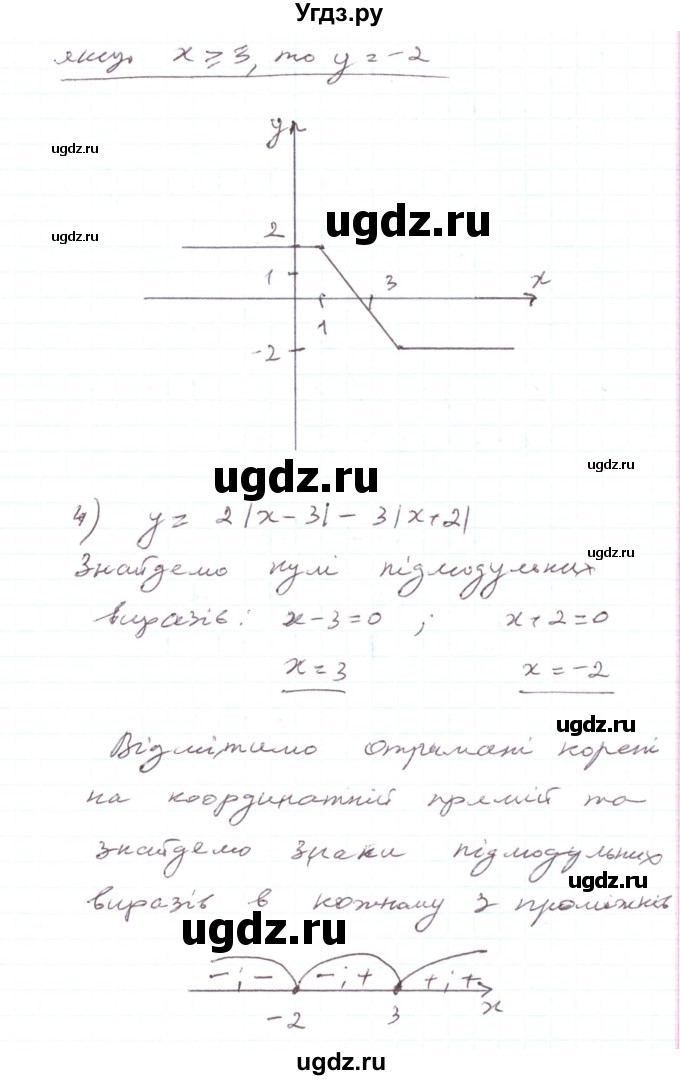 Угдз.ру
якщо x ≥ 3, то y = -2
y
ugdz.ru
ugdz.ru
ugdz.ru
2
1
3
x
1
-2
ugdz.ru
ugdz.ru
4) y = 2|x-3| - 3|x+2|
ugdz.ru
Знайдемо нулі підмодульних
виразів: x-3=0 ; x+2=0
x=3 x=-2
ugdz.ru
Відмітимо отримані корені
на координатній прямій та
знайдемо знаки підмодульних
ugdz.ru
виразів в кожному з проміжків
ugdz.ru
-;- -;+ +;+
-2 3 x
ugdz.ru